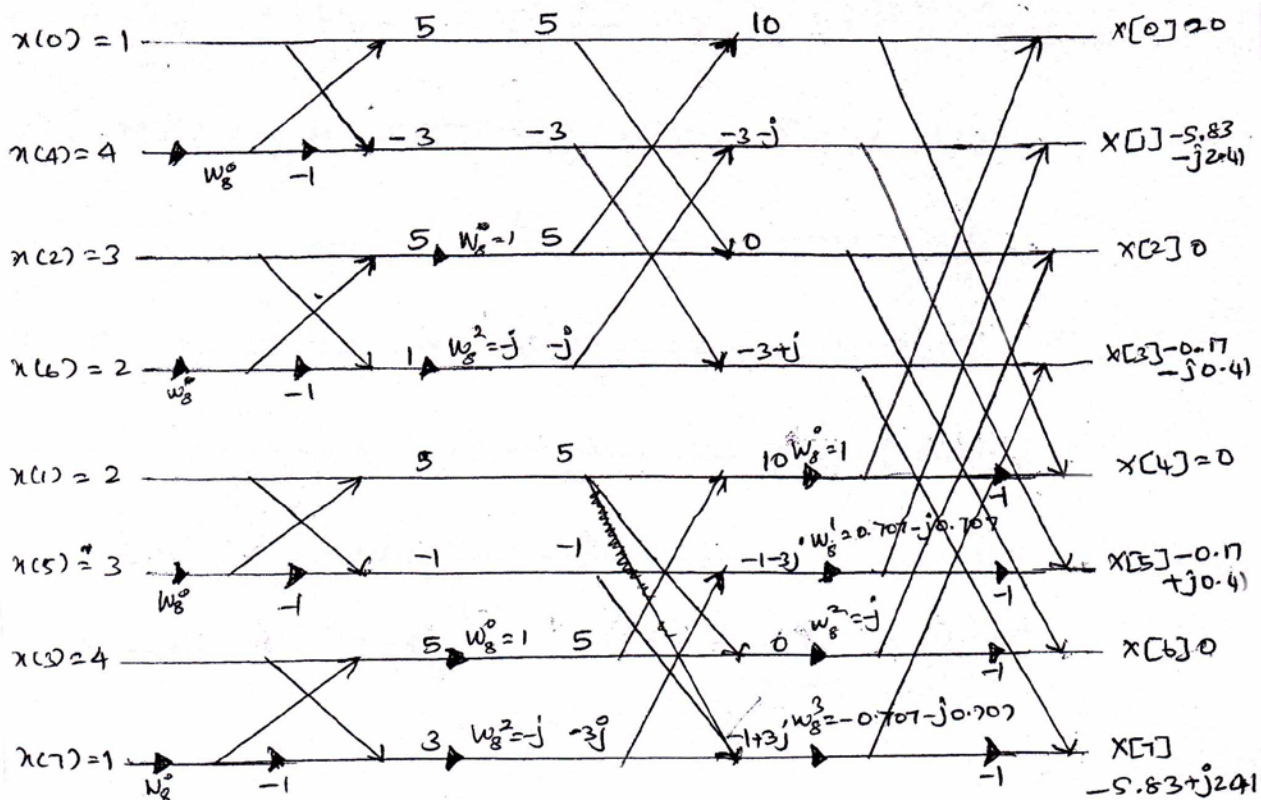 x(0) = 1 5 5 10 X[0] 20
x(4) = 4 W₈⁰ -1 -3 -3 -3-j X[1] -5.83
-j2.41
x(2) = 3 5 W₈⁰=1 5 0 X[2] 0
x(6) = 2 W₈⁰ -1 1 W₈²=-j -j -3+j X[3] -0.17
-j0.41
x(1) = 2 5 5 10 W₈⁰=1 -1 X[4]=0
x(5) = 3 W₈⁰ -1 -1 -1 -1-3j W₈¹=0.707-j0.707 -1 X[5] -0.17
+j0.41
x(3)=4 5 W₈⁰=1 5 0 W₈²=-j -1 X[6] 0
x(7)=1 W₈⁰ -1 3 W₈²=-j -3j -1+3j W₈³=-0.707-j0.707 -1 X[7]
-5.83+j2.41